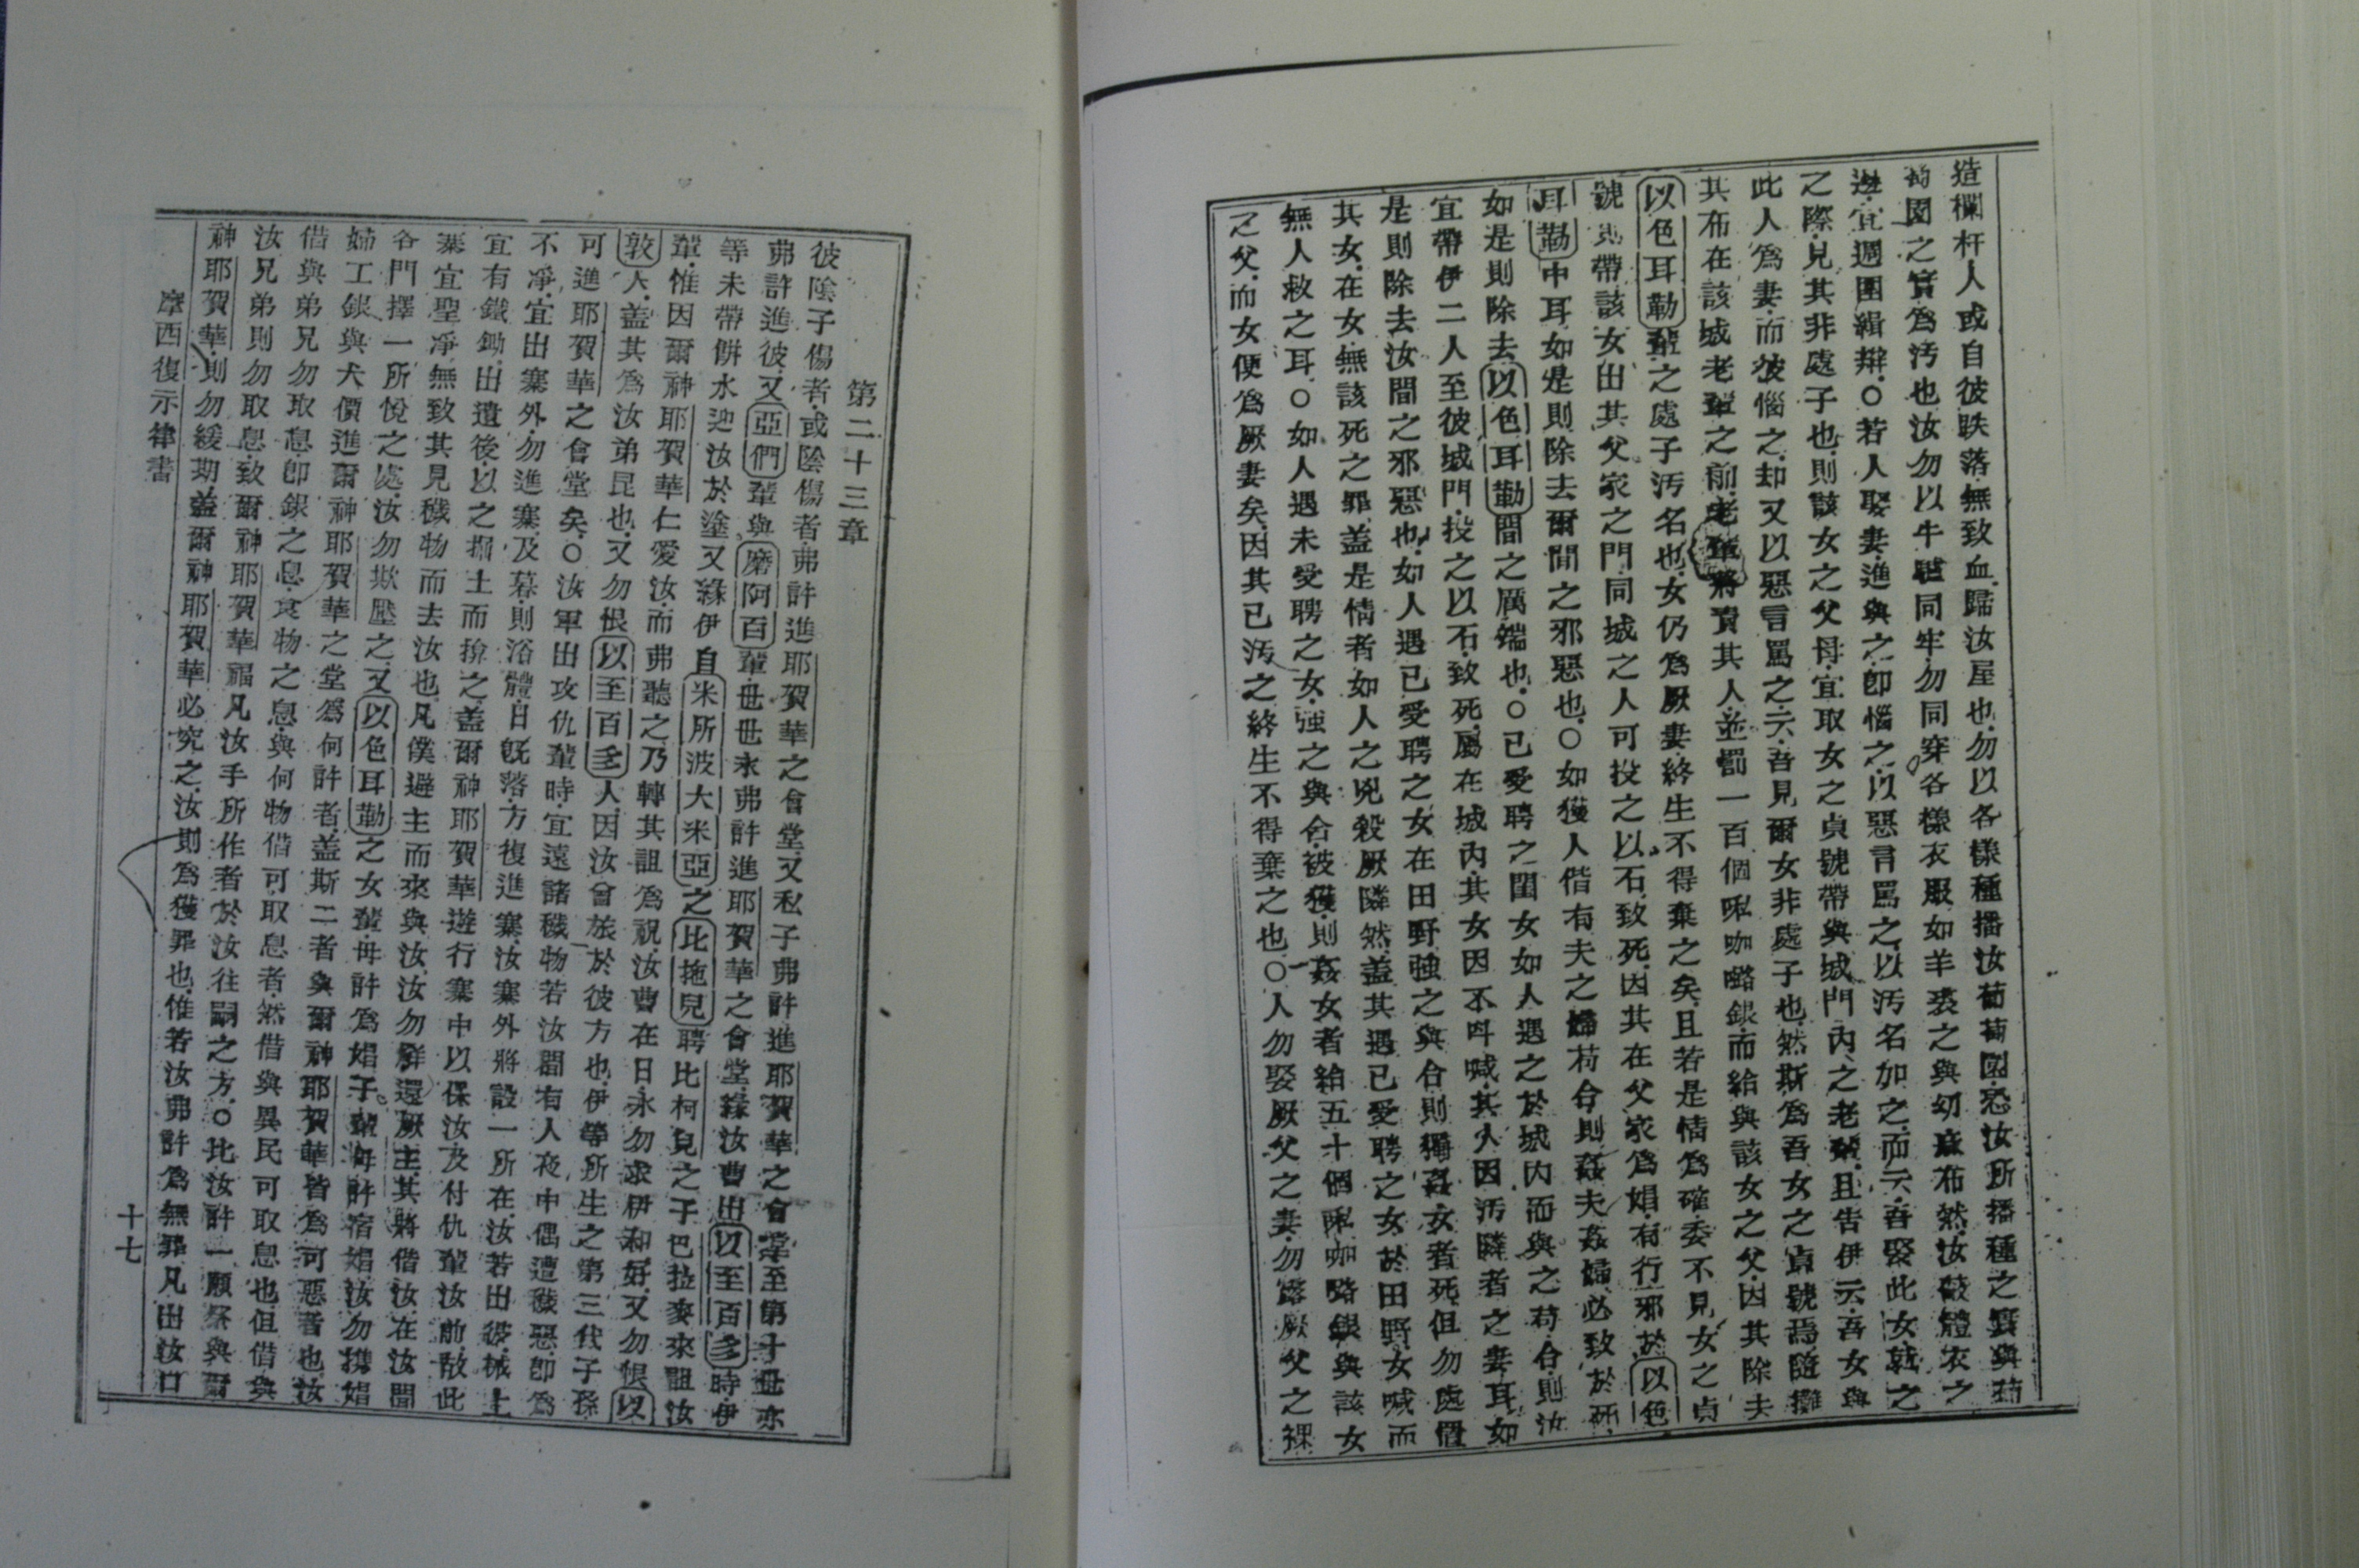 造欄杆人或自彼跌落無致血歸汝屋也勿以各樣種播汝葡萄園恐汝所播種之實與葡
萄園之實為汚也汝勿以牛驢同牢勿同穿各樣衣服如羊裘之與幼蔴布然汝蔽體衣之
邊宜週圍緝辮○若人娶妻進與之卽惱之以惡言罵之以汚名如之而云吾娶此女就之
之際見其非處子也則該女之父母宜取女之貞號帶與城門內之老輩且告伊云吾女與
此人為妻而彼惱之却又以惡言罵之云吾見爾女非處子也然斯為吾女之貞號焉隨攤
其布在該城老輩之前老輩將責其人並罰一百個㖠咖嚕銀而給與該女之父因其除夫
以色耳勒輩之處子汚名也女仍為厥妻終生不得棄之矣且若是情為確委不見女之貞
號則帶該女出其父家之門同城之人可投之以石致死因其在父家為娼有行邪於以色
耳勒中耳如是則除去爾間之邪惡也○如獲人偕有夫之婦苟合則姦夫姦婦必致於死
如是則除去以色耳勒間之厲端也○已受聘之閨女如人遇之於城內而與之苟合則汝
宜帶伊二人至彼城門投之以石致死屬在城內其女因不呌喊其人因汚隣者之妻耳如
是則除去汝間之邪惡也如人遇已受聘之女在田野強之與合則獨姦女者死但勿處置
其女在女無該死之罪盖是情者如人之兇殺厥隣然盖其遇已受聘之女於田野女喊而
無人救之耳○如人遇未受聘之女強之與合被獲則姦女者給五十個㖠咖嚕銀與該女
之父而女便為厥妻矣因其已汚之終生不得棄之也○人勿娶厥父之妻勿露厥父之裸
第二十三章
彼陰子傷者或陰傷者弗許進耶賀華之會堂又私子弗許進耶賀華之會堂至第十世亦
弗許進彼又亞們輩與磨阿百輩世世永弗許進耶賀華之會堂緣汝曹出以至百多時伊
等未帶餅水迎汝於塗又緣伊自米所波大米亞之比拖兒聘比柯兒之子巴拉麥來詛汝
輩惟因爾神耶賀華仁愛汝而弗聽之乃轉其詛為祝汝曹在日永勿求伊和好又勿恨以
敦人盖其為汝弟昆也又勿恨以至百多人因汝曾旅於彼方也伊等所生之第三代子孫
可進耶賀華之會堂矣○汝軍出攻仇輩時宜遠諸穢物若汝間有人夜中偶遭穢惡卽為
不凈宜出寨外勿進寨及暮則浴體日旣落方復進寨汝寨外將設一所在汝若出彼械上
宜有鐵鋤出遺後以之掘土而揜之盖爾神耶賀華遊行寨中以保汝及付仇輩汝前故此
寨宜聖凈無致其見穢物而去汝也凡僕避主而來與汝汝勿解還厥主其將偕汝在汝間
各門擇一所悅之處汝勿欺壓之又以色耳勒之女輩毋許為娼子輩毋許宿娼汝勿攜娼
婦工銀與犬價進爾神耶賀華之堂為何許者盖斯二者與爾神耶賀華皆為可惡者也汝
借與弟兄勿取息卽銀之息食物之息與何物借可取息者然借與異民可取息也但借與
汝兄弟則勿取息致爾神耶賀華福凡汝手所作者於汝往嗣之方○比汝許一願祭與爾
神耶賀華則勿緩期盖爾神耶賀華必究之汝則為獲罪也惟若汝弗許為無罪凡出汝口
摩西復示律書 十七